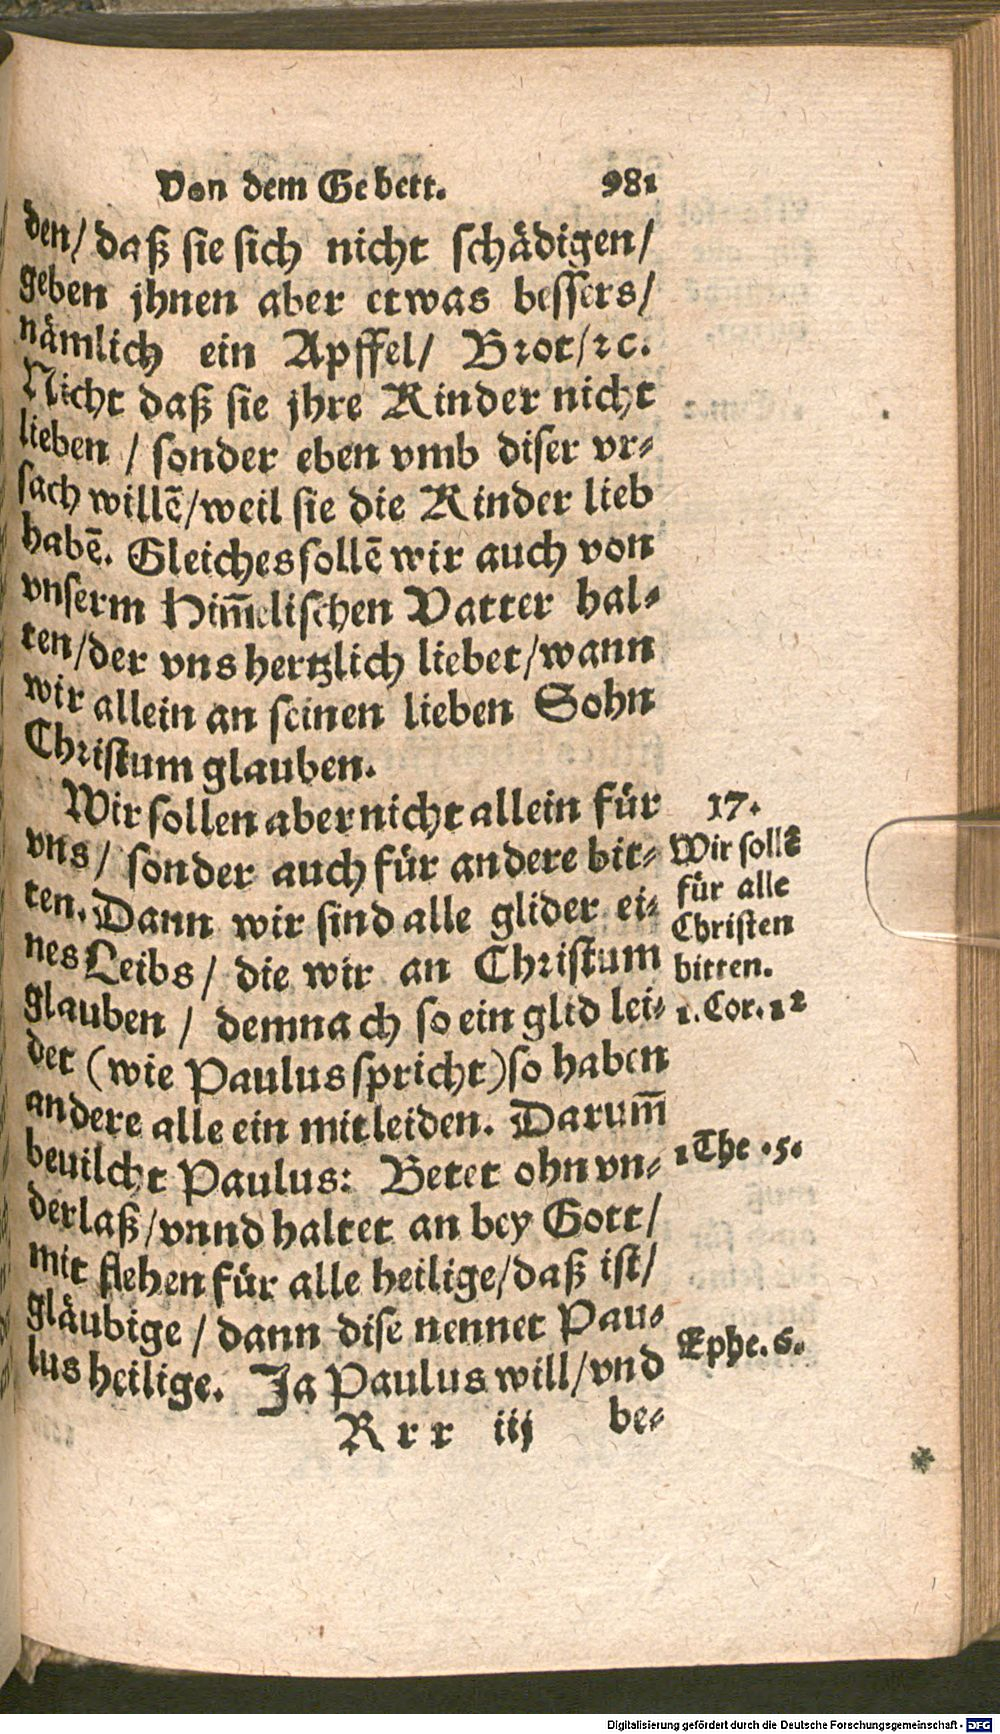 Von dem Gebett. 981
den/ daß sie sich nicht schädigen/
geben jhnen aber etwas bessers/
nämlich ein Apffel/ Brot/ꝛc.
Nicht daß sie jhre Kinder nicht
lieben / sonder eben vmb diser vr-
sach willē/weil sie die Kinder lieb
habē. Gleiches sollē wir auch von
vnserm Him̄elischen Vatter hal-
ten/der vns hertzlich liebet/wann
wir allein an seinen lieben Sohn
Christum glauben.
Wir sollen aber nicht allein für
vns/ sonder auch für andere bit-
ten. Dann wir sind alle glider ei-
nes Leibs/ die wir an Christum
glauben / demnach so ein glid lei-
det (wie Paulus spricht) so haben
andere alle ein mitleiden. Darum̄
beuilcht Paulus: Betet ohn vn-
derlaß/vnnd haltet an bey Gott/
mit flehen für alle heilige/daß ist/
gläubige / dann dise nennet Pau-
lus heilige. Ja Paulus will/vnd
Rrr iij be-
17.
Wir sollē
für alle
Christen
bitten.
1. Cor. 12
1 The .5.
Ephe. 6.
Digitalisierung gefördert durch die Deutsche Forschungsgemeinschaft - DFG